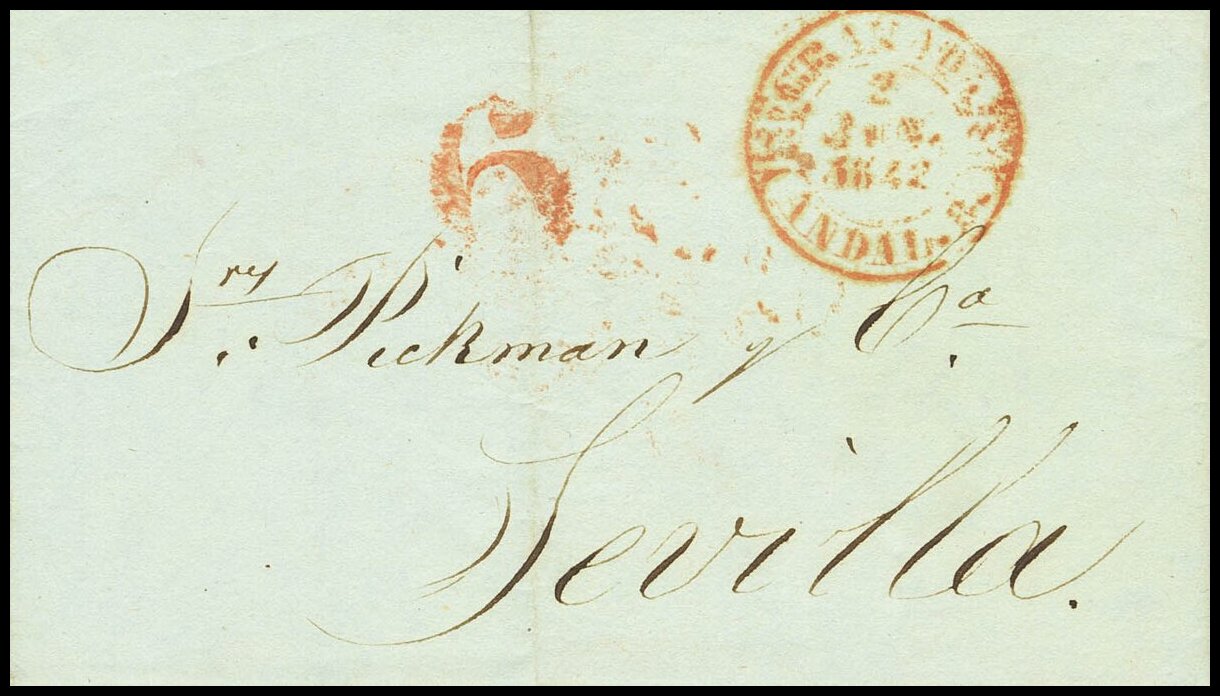 6
GRANADA
2
JUN.
1842
ANDAL. B.
Sres. Pickman y Ca.
Sevilla.